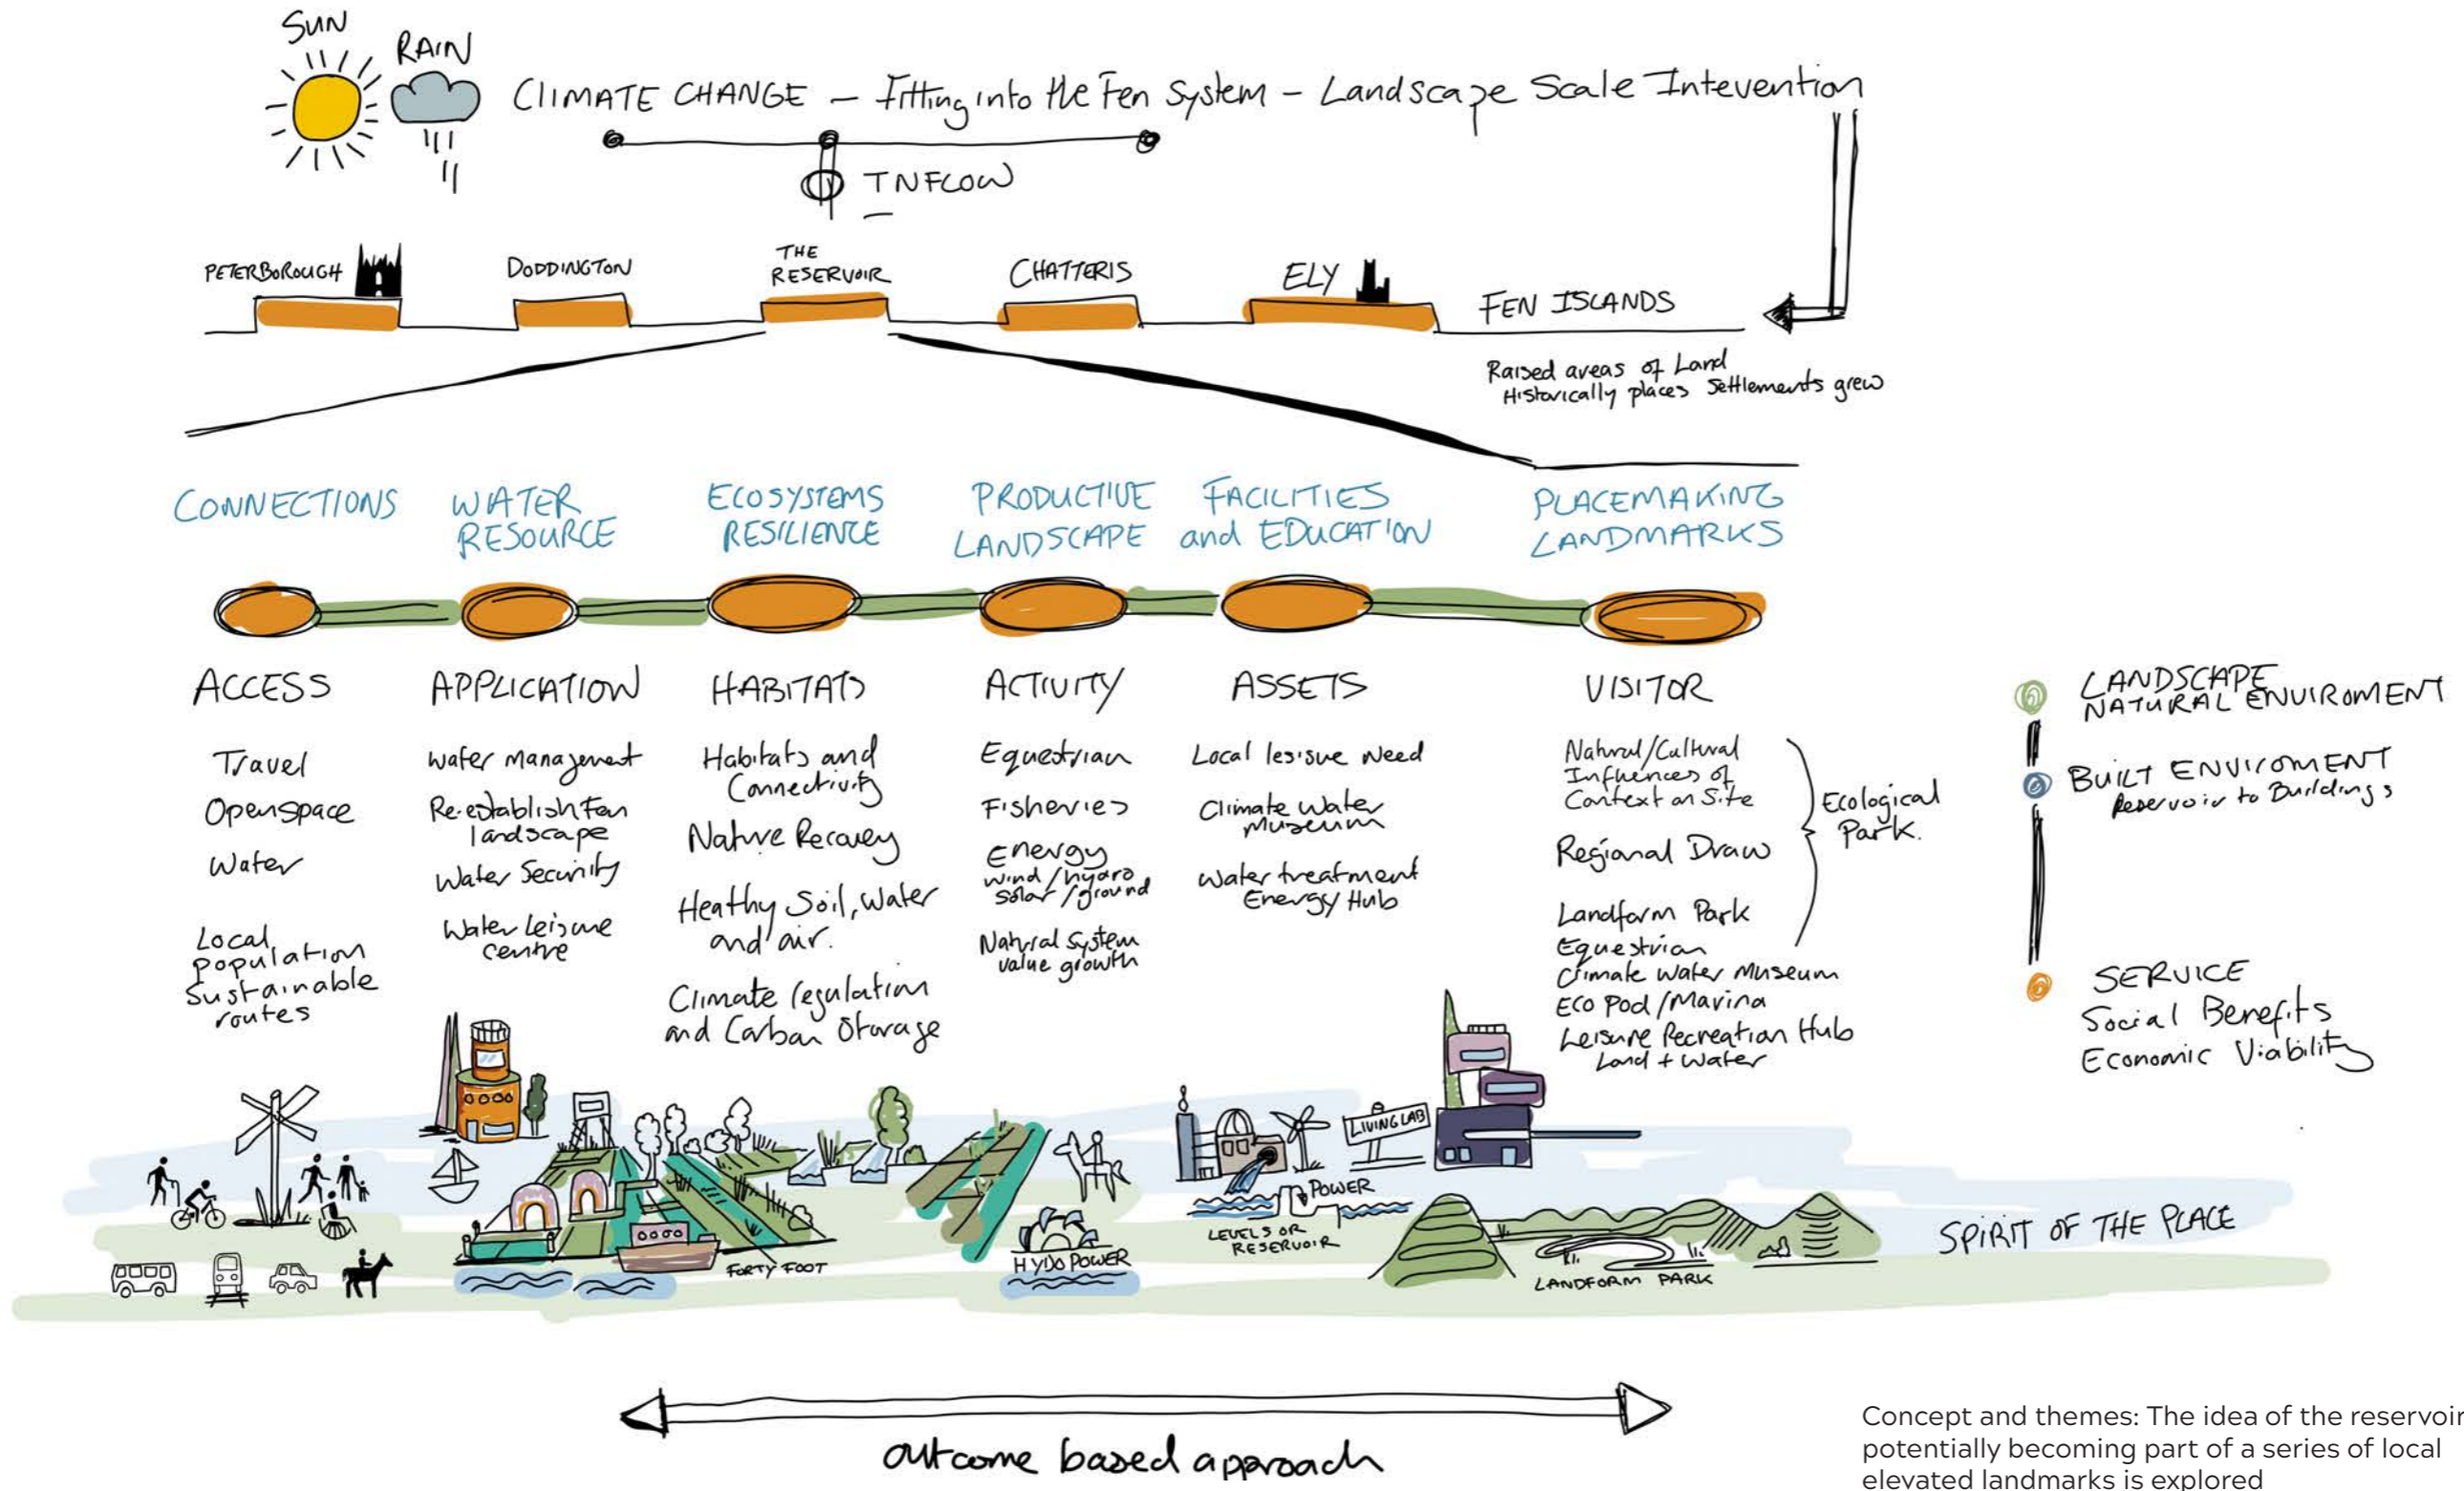 SUN
RAIN
CLIMATE CHANGE – Fitting into the Fen System – Landscape Scale Intevention
INFLOW
PETERBOROUGH
DODDINGTON
THE
RESERVOIR
CHATTERIS
ELY
FEN ISLANDS
Raised areas of Land
Historically places Settlements grew
CONNECTIONS
WATER
RESOURCE
ECOSYSTEMS
RESILIENCE
PRODUCTIVE
LANDSCAPE
FACILITIES
and EDUCATION
PLACEMAKING
LANDMARKS
ACCESS
Travel
Openspace
Water
Local
Population
Sustainable
routes
APPLICATION
Water Management
Re-establish Fen
landscape
Water Security
Water Leisure
centre
HABITATS
Habitats and
Connectivity
Nature Recovery
Heathy Soil, Water
and air.
Climate regulation
and Carbon Storage
ACTIVITY
Equestrian
Fisheries
Energy
wind/hydro
solar/ground
Natural System
value growth
ASSETS
Local lesisue Need
Climate Water
Museum
Water treatment
Energy Hub
VISITOR
Natural/Cultural
Influences of
Context on Site
Regional Draw
Landform Park
Equestrian
Climate Water Museum
Eco Pod/Marina
Leisure Recreation Hub
Land + Water
Ecological
Park.
LANDSCAPE
NATURAL ENVIROMENT
BUILT ENVIROMENT
Reservoir to Buildings
SERVICE
Social Benefits
Economic Viability
LIVING LAB
POWER
LEVELS OR
RESERVOIR
HYDO POWER
FORTY FOOT
LANDFORM PARK
SPIRIT OF THE PLACE
outcome based approach
Concept and themes: The idea of the reservoir
potentially becoming part of a series of local
elevated landmarks is explored